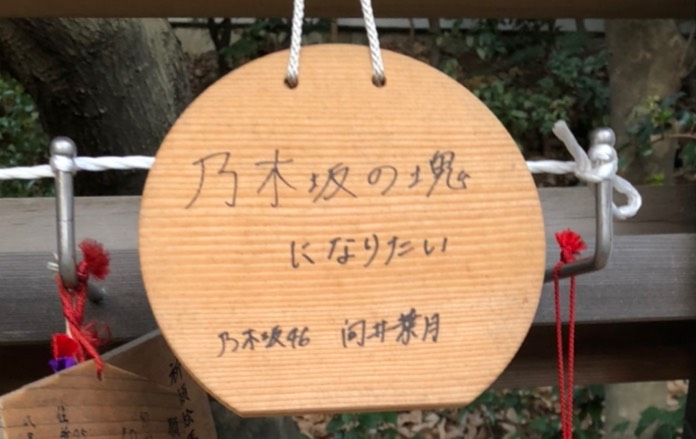 乃木坂の塊
になりたい
乃木坂46 向井葉月